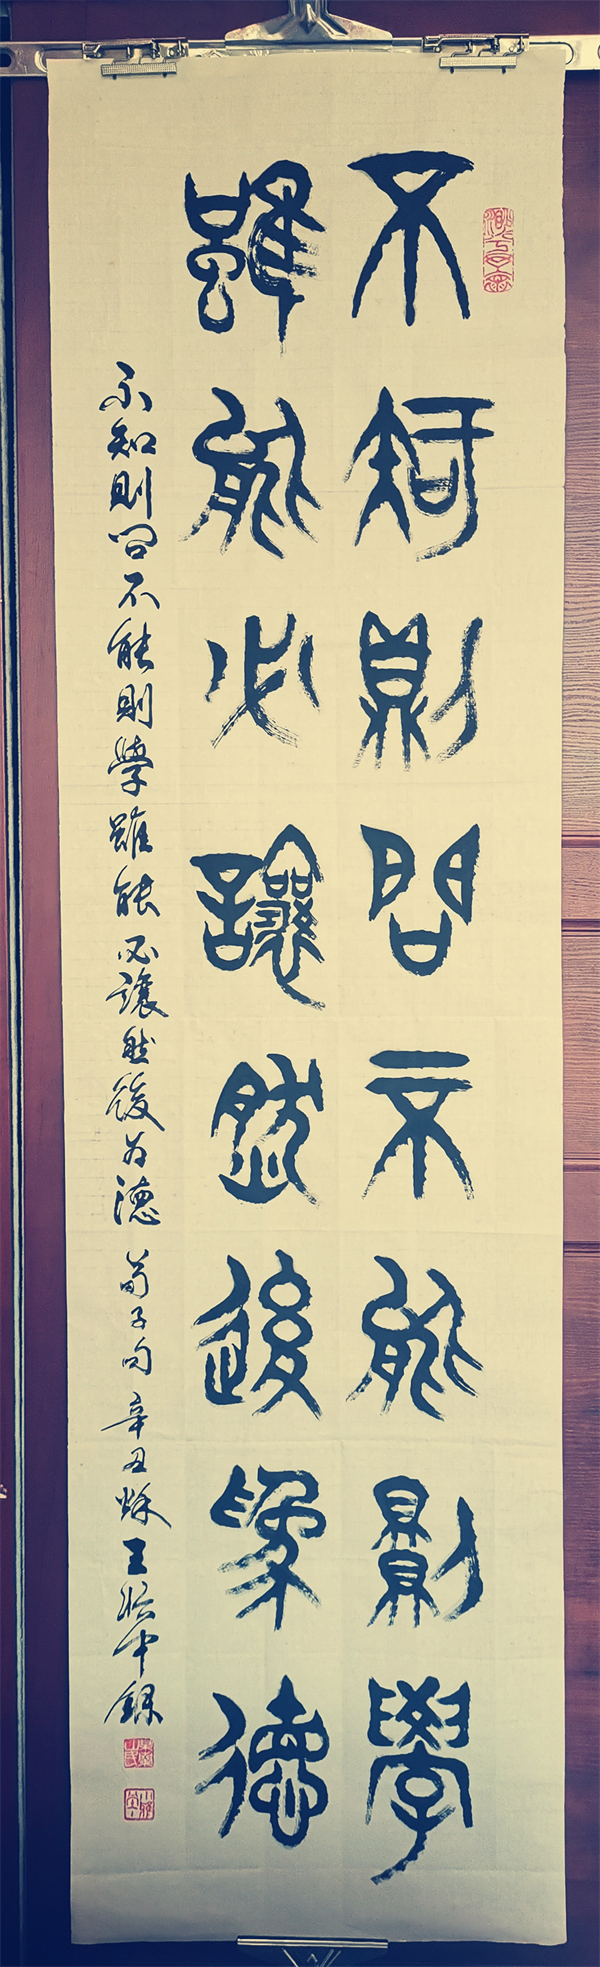 不知則問不能則學
雖能必讓然後為德
不知則問不能則學雖能必讓然後为德 荀子句 辛丑秋王 中録